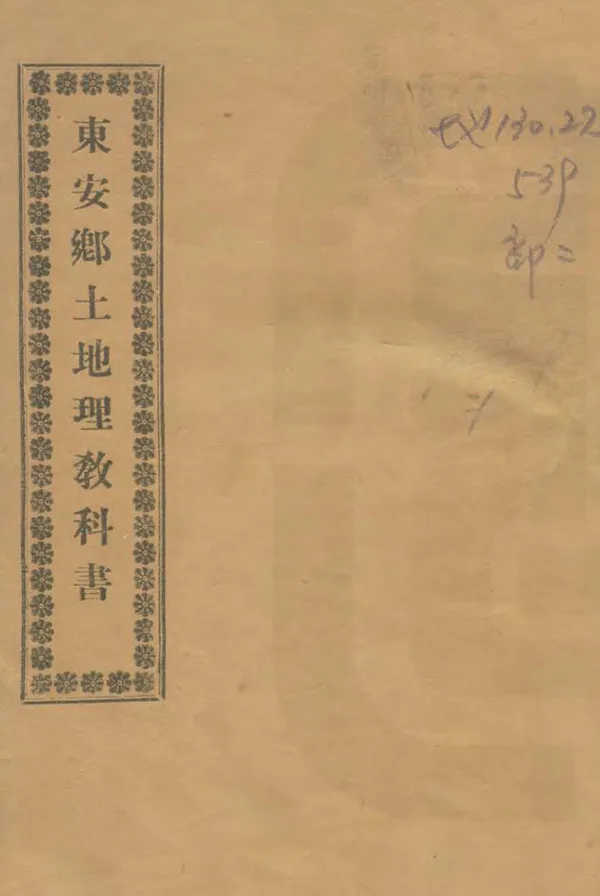 東安鄉土地理教科書
130.22
539
部二